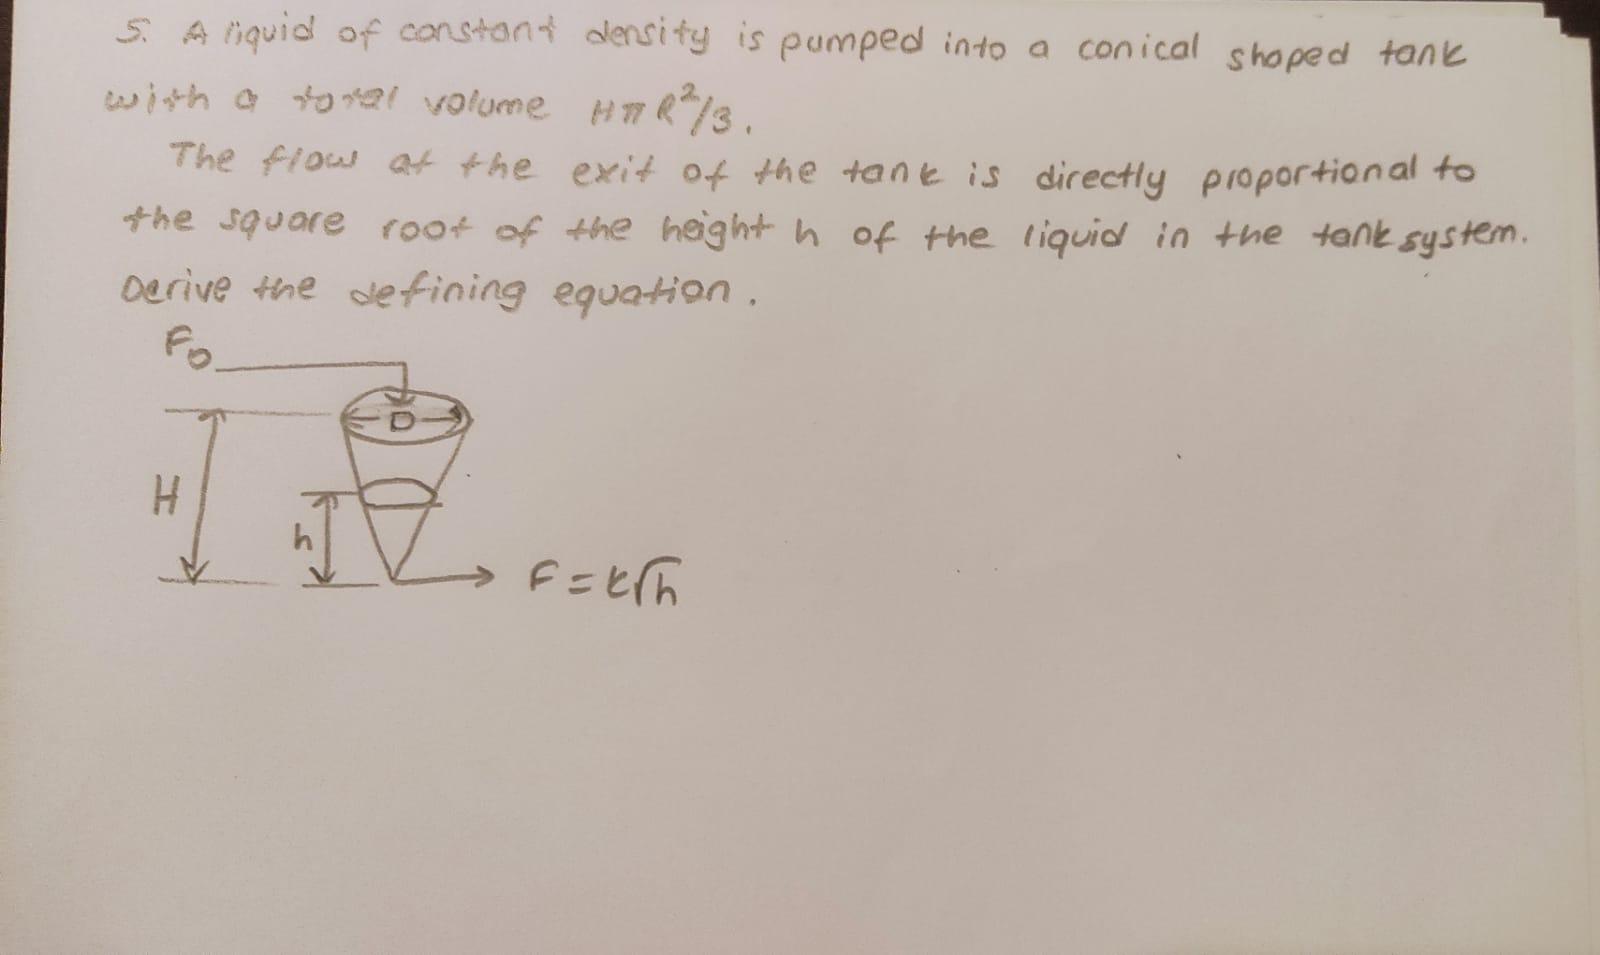 5. A liquid of constant density is pumped into a conical shaped tank
with a total volume HπR²/3.
The flow at the exit of the tank is directly proportional to
the square root of the height h of the liquid in the tank system.
Derive the defining equation.
F₀
D
H
h
F = k√h